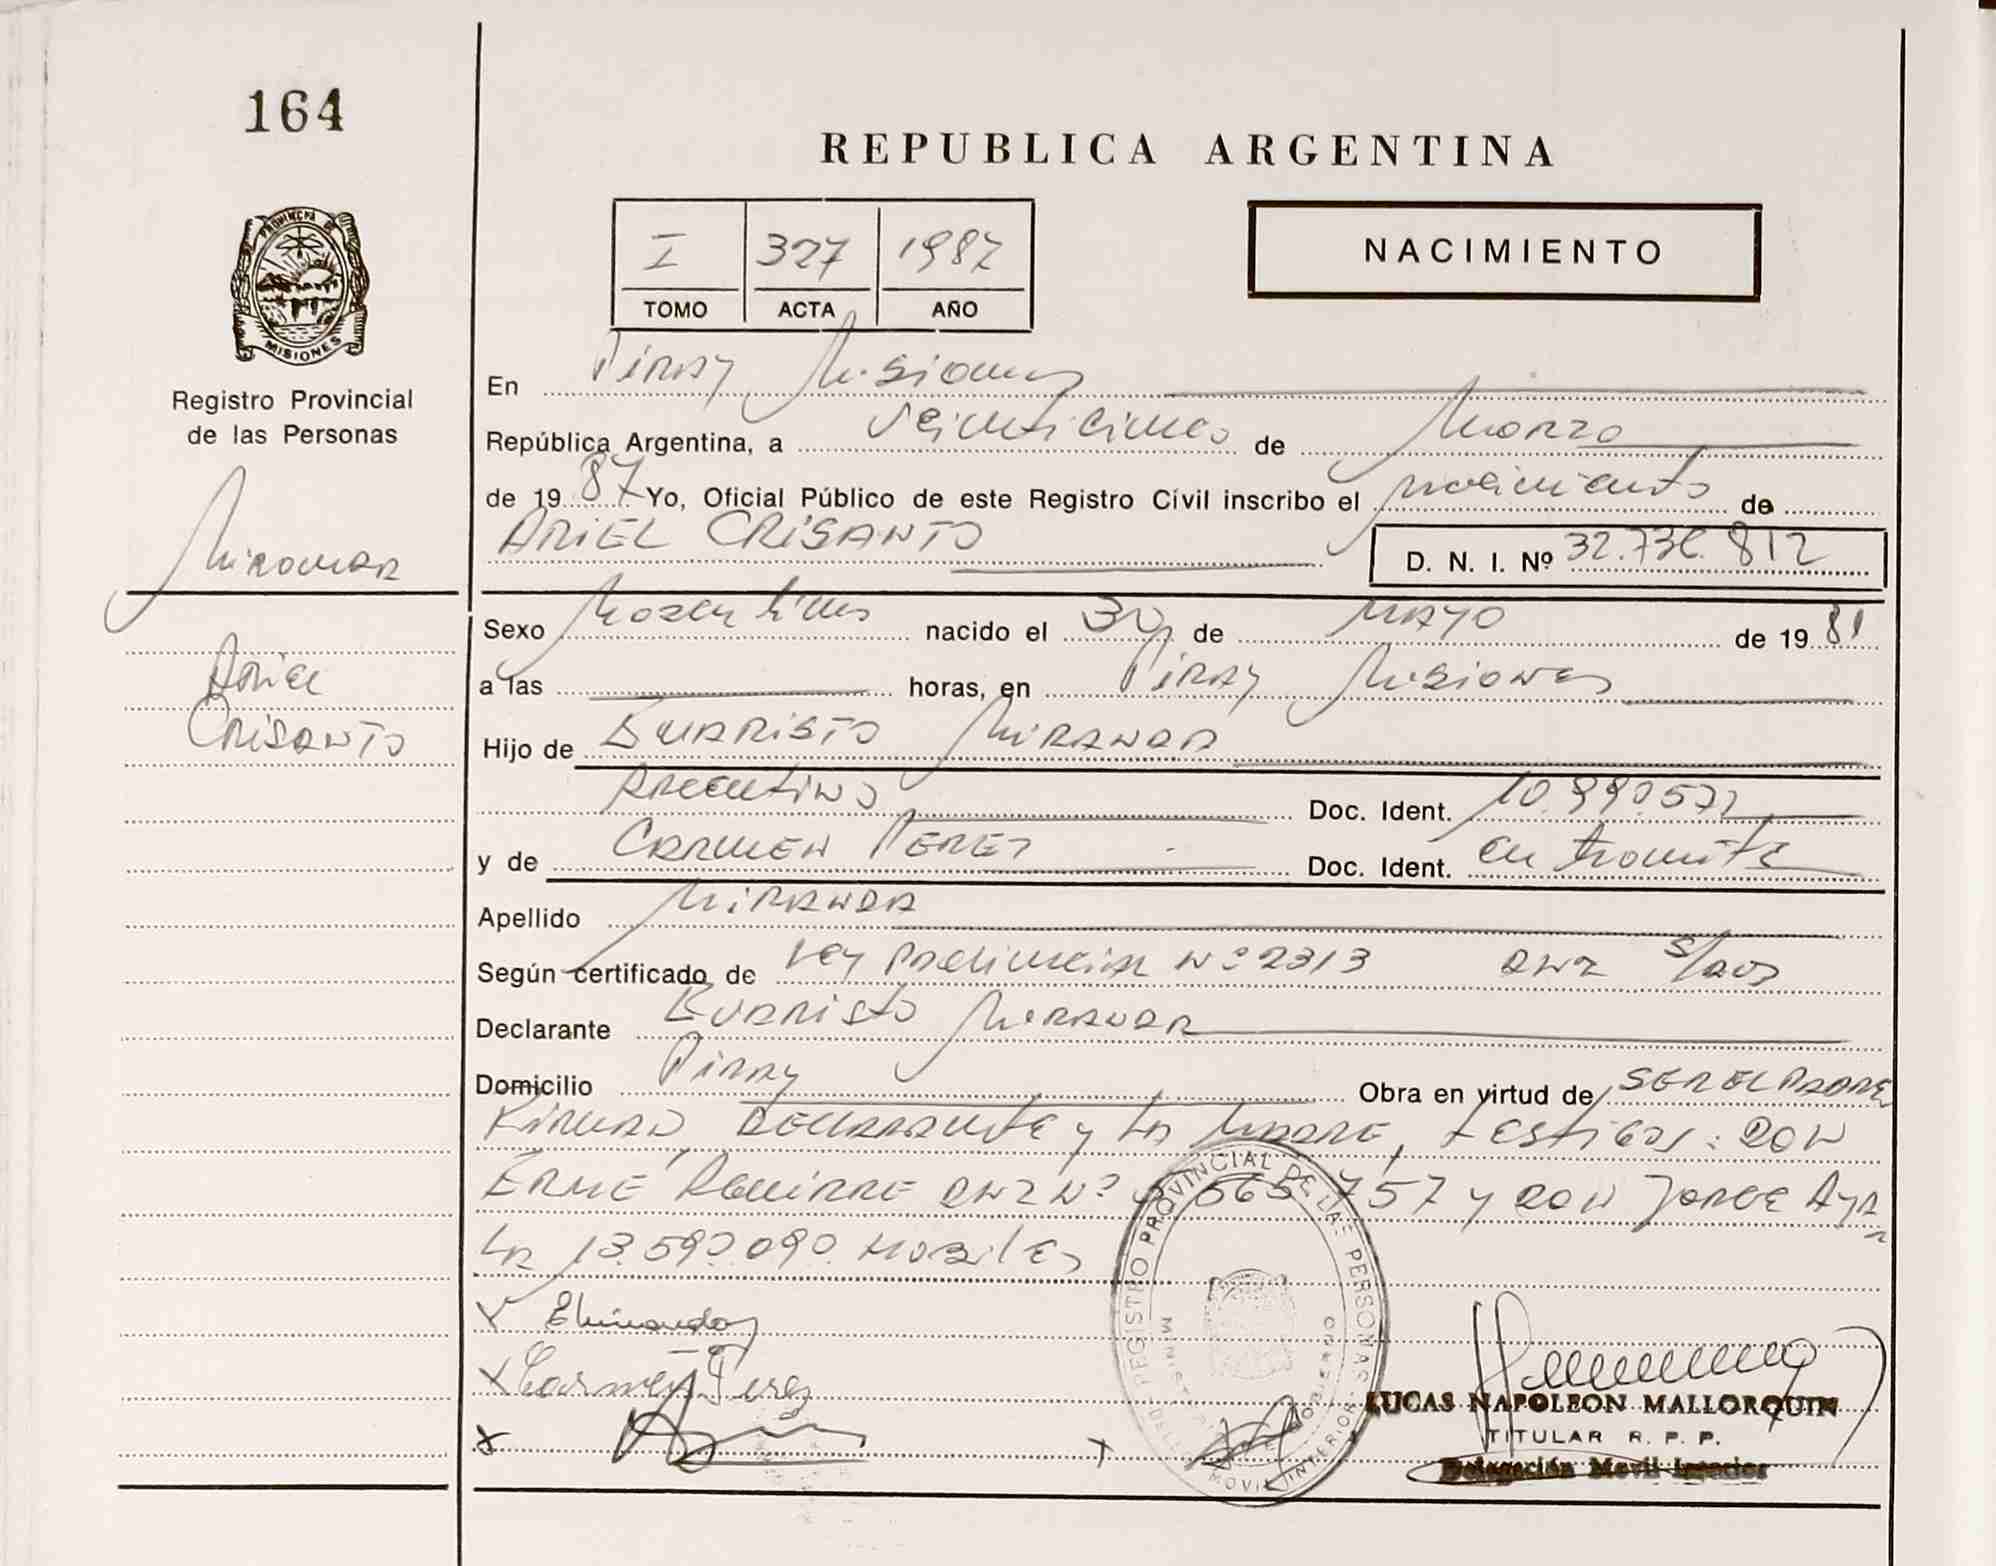 164
REPUBLICA ARGENTINA
I 327 1987
TOMO ACTA AÑO
NACIMIENTO
PROVINCIA DE
MISIONES
Registro Provincial
de las Personas
En Piray Misiones
República Argentina, a veinticinco de Marzo
de 1987 Yo, Oficial Público de este Registro Cívil inscribo el nacimiento de
ARIEL CRISANTO
D. N. I. Nº 32.736.812
Ariel
Crisanto
Sexo Masculino nacido el 30 de MAYO de 1981
a las horas, en Piray Misiones
Hijo de Evaristo Miranda
Argentino Doc. Ident. 10.990.572
y de CARMEN PEREZ Doc. Ident. en tramite
Apellido Miranda
Según certificado de Ley Nº 2313
Declarante Evaristo Miranda
Domicilio Piray Obra en virtud de SER EL PADRE
Firman, Declarante y la Madre, testigos: DON
Aguirre DNI Nº 565 757 y DON Jorge Aya
la 13.590.090 Mobiles
Carmen Perez
REGISTRO PROVINCIAL DE LAS PERSONAS
LUCAS NAPOLEON MALLORQUIN
TITULAR R. P. P.
Delegación Movil Interior